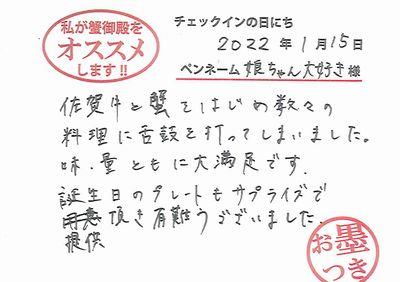 私が蟹御殿を
オススメ
します!!
チェックインの日にち
2022年1月15日
ペンネーム 娘ちゃん大好き 様
佐賀牛と蟹をはじめ数々の
料理に舌鼓を打ってしまいました。
味・量ともに大満足です。
誕生日のプレートもサプライズで
頂き有難うございました。
提供
お墨
つき